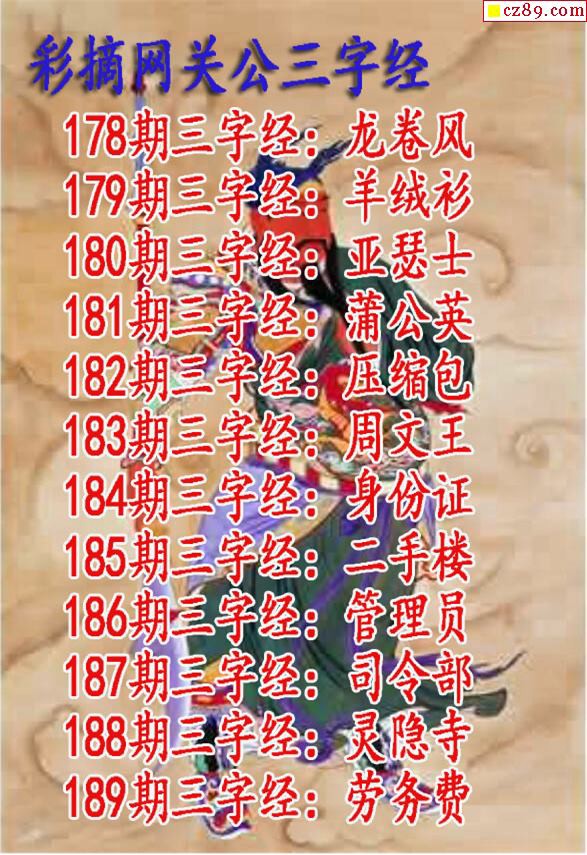 cz89.com
彩摘网关公三字经
178期三字经：龙卷风
179期三字经：羊绒衫
180期三字经：亚瑟士
181期三字经：蒲公英
182期三字经：压缩包
183期三字经：周文王
184期三字经：身份证
185期三字经：二手楼
186期三字经：管理员
187期三字经：司令部
188期三字经：灵隐寺
189期三字经：劳务费